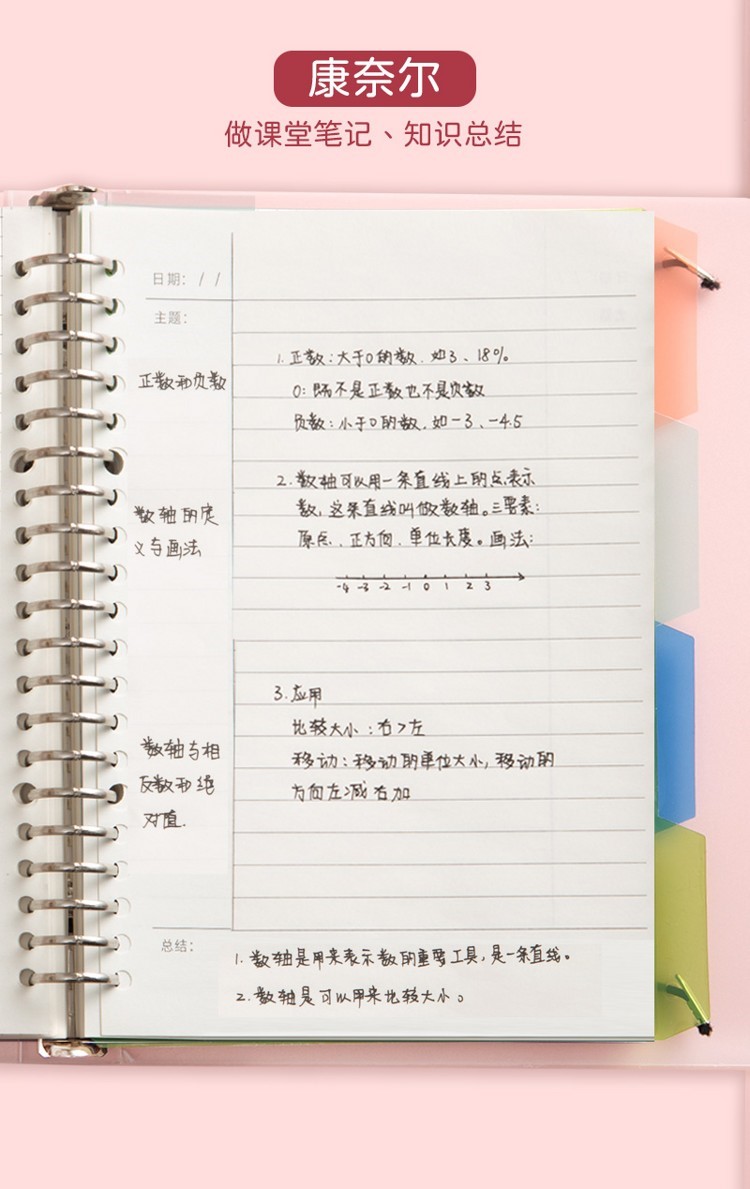 康奈尔
做课堂笔记、知识总结
日期: / /
主题:
正数和负数
1. 正数:大于0的数.如3、18%
0:既不是正数也不是负数
负数:小于0的数.如-3、-4.5
数轴的定
义与画法
2. 数轴可以用一条直线上的点表示
数,这条直线叫做数轴。三要素:
原点、正方向、单位长度。画法:
-4 -3 -2 -1 0 1 2 3
数轴与相
反数和绝
对值.
3. 应用
比较大小:右>左
移动:移动的单位大小,移动的
方向左减右加
总结:
1. 数轴是用来表示数的重要工具,是一条直线。
2. 数轴是可以用来比较大小。